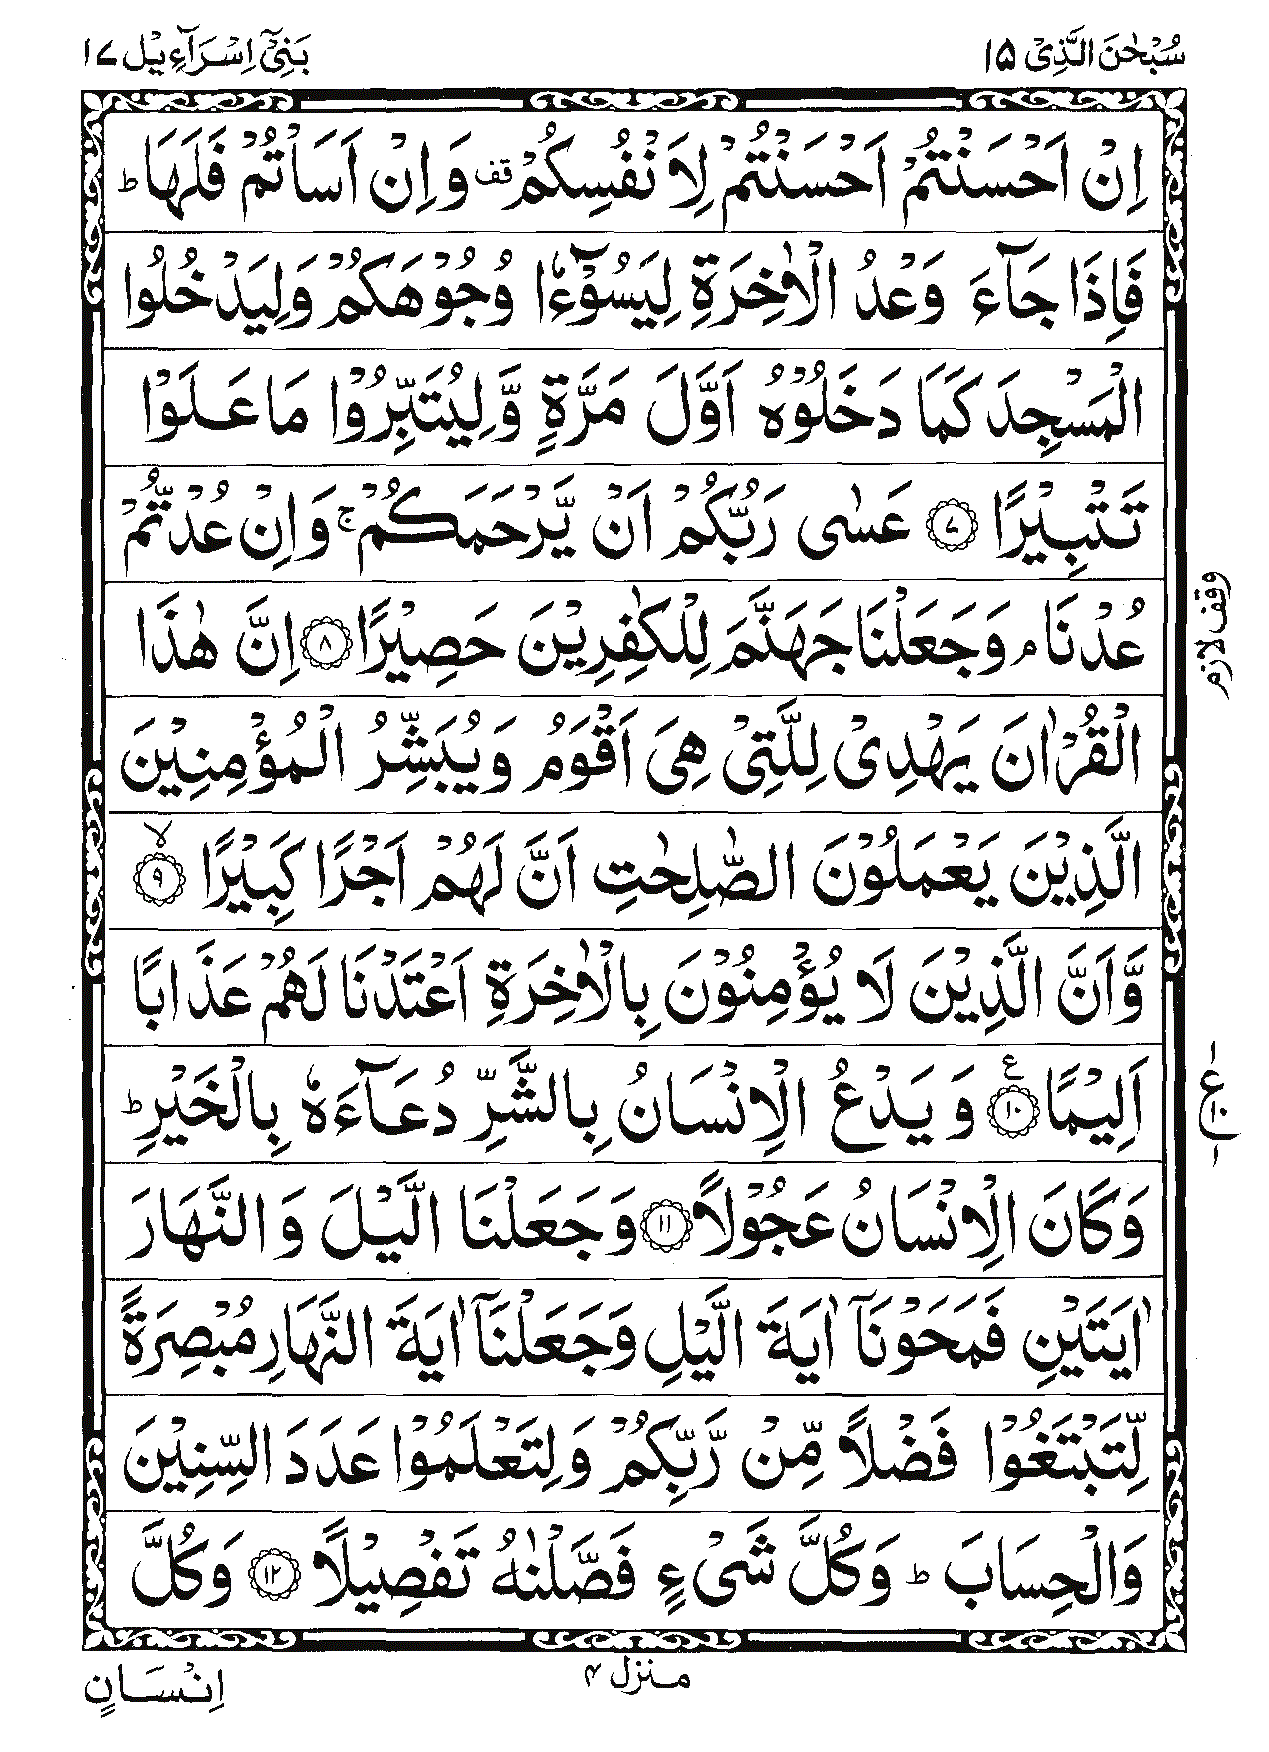 سُبْحٰنَ الَّذِیْۤ ۱۵
بَنِیْۤ اِسْرَآءِیْل ۱۷
اِنْ اَحْسَنْتُمْ اَحْسَنْتُمْ لِاَنْفُسِكُمْ ۫ وَاِنْ اَسَاْتُمْ فَلَهَا ؕ
فَاِذَا جَآءَ وَعْدُ الْاٰخِرَةِ لِیَسُوْٓءٗا وُجُوْهَكُمْ وَلِیَدْخُلُوا
الْمَسْجِدَ كَمَا دَخَلُوْهُ اَوَّلَ مَرَّةٍ وَّلِیُتَبِّرُوْا مَا عَلَوْا
تَتْبِیْرًا ۷ عَسٰی رَبُّكُمْ اَنْ یَّرْحَمَكُمْ ۚ وَاِنْ عُدْتُّمْ
عُدْنَا ۘ وَجَعَلْنَا جَهَنَّمَ لِلْكٰفِرِیْنَ حَصِیْرًا ۸ اِنَّ هٰذَا
وقف لازم
الْقُرْاٰنَ یَهْدِیْ لِلَّتِیْ هِیَ اَقْوَمُ وَیُبَشِّرُ الْمُؤْمِنِیْنَ
الَّذِیْنَ یَعْمَلُوْنَ الصّٰلِحٰتِ اَنَّ لَهُمْ اَجْرًا كَبِیْرًا ۹ ۙ
وَّاَنَّ الَّذِیْنَ لَا یُؤْمِنُوْنَ بِالْاٰخِرَةِ اَعْتَدْنَا لَهُمْ عَذَابًا
اَلِیْمًا ۱۰ ع وَیَدْعُ الْاِنْسَانُ بِالشَّرِّ دُعَآءَهٗ بِالْخَیْرِ ؕ
۱ ع ۱۰ ۱
وَكَانَ الْاِنْسَانُ عَجُوْلًا ۱۱ وَجَعَلْنَا الَّیْلَ وَالنَّهَارَ
اٰیَتَیْنِ فَمَحَوْنَاۤ اٰیَةَ الَّیْلِ وَجَعَلْنَاۤ اٰیَةَ النَّهَارِ مُبْصِرَةً
لِّتَبْتَغُوْا فَضْلًا مِّنْ رَّبِّكُمْ وَلِتَعْلَمُوْا عَدَدَ السِّنِیْنَ
وَالْحِسَابَ ؕ وَكُلَّ شَیْءٍ فَصَّلْنٰهُ تَفْصِیْلًا ۱۲ وَكُلَّ
منزل ۴
اِنْسَانٍ